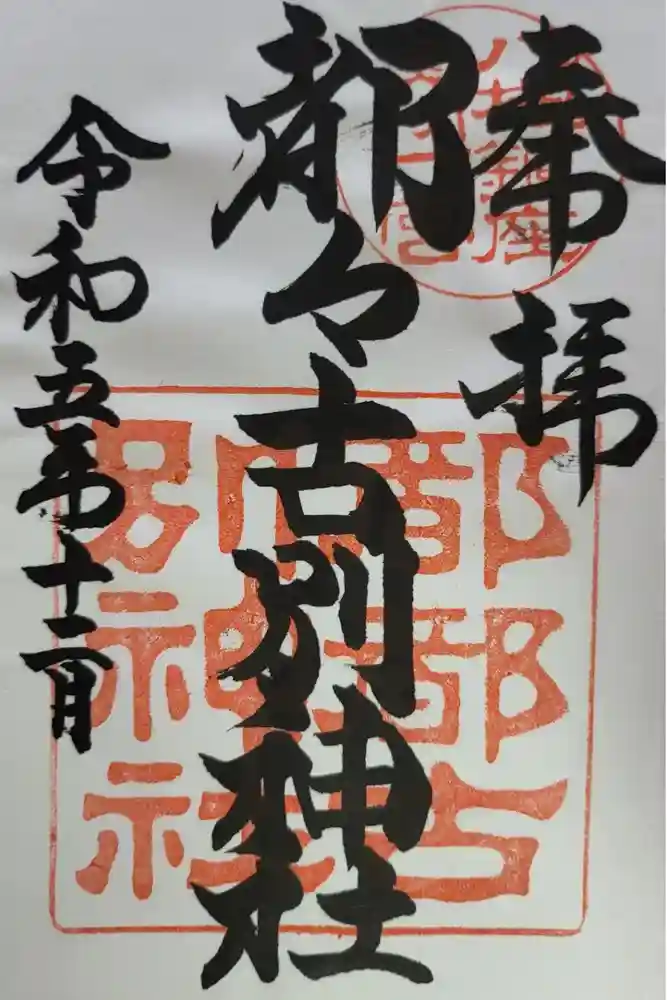 奉拝
鎮座
一宮
都々古別神社
都都古
別神社
令和五年十二月